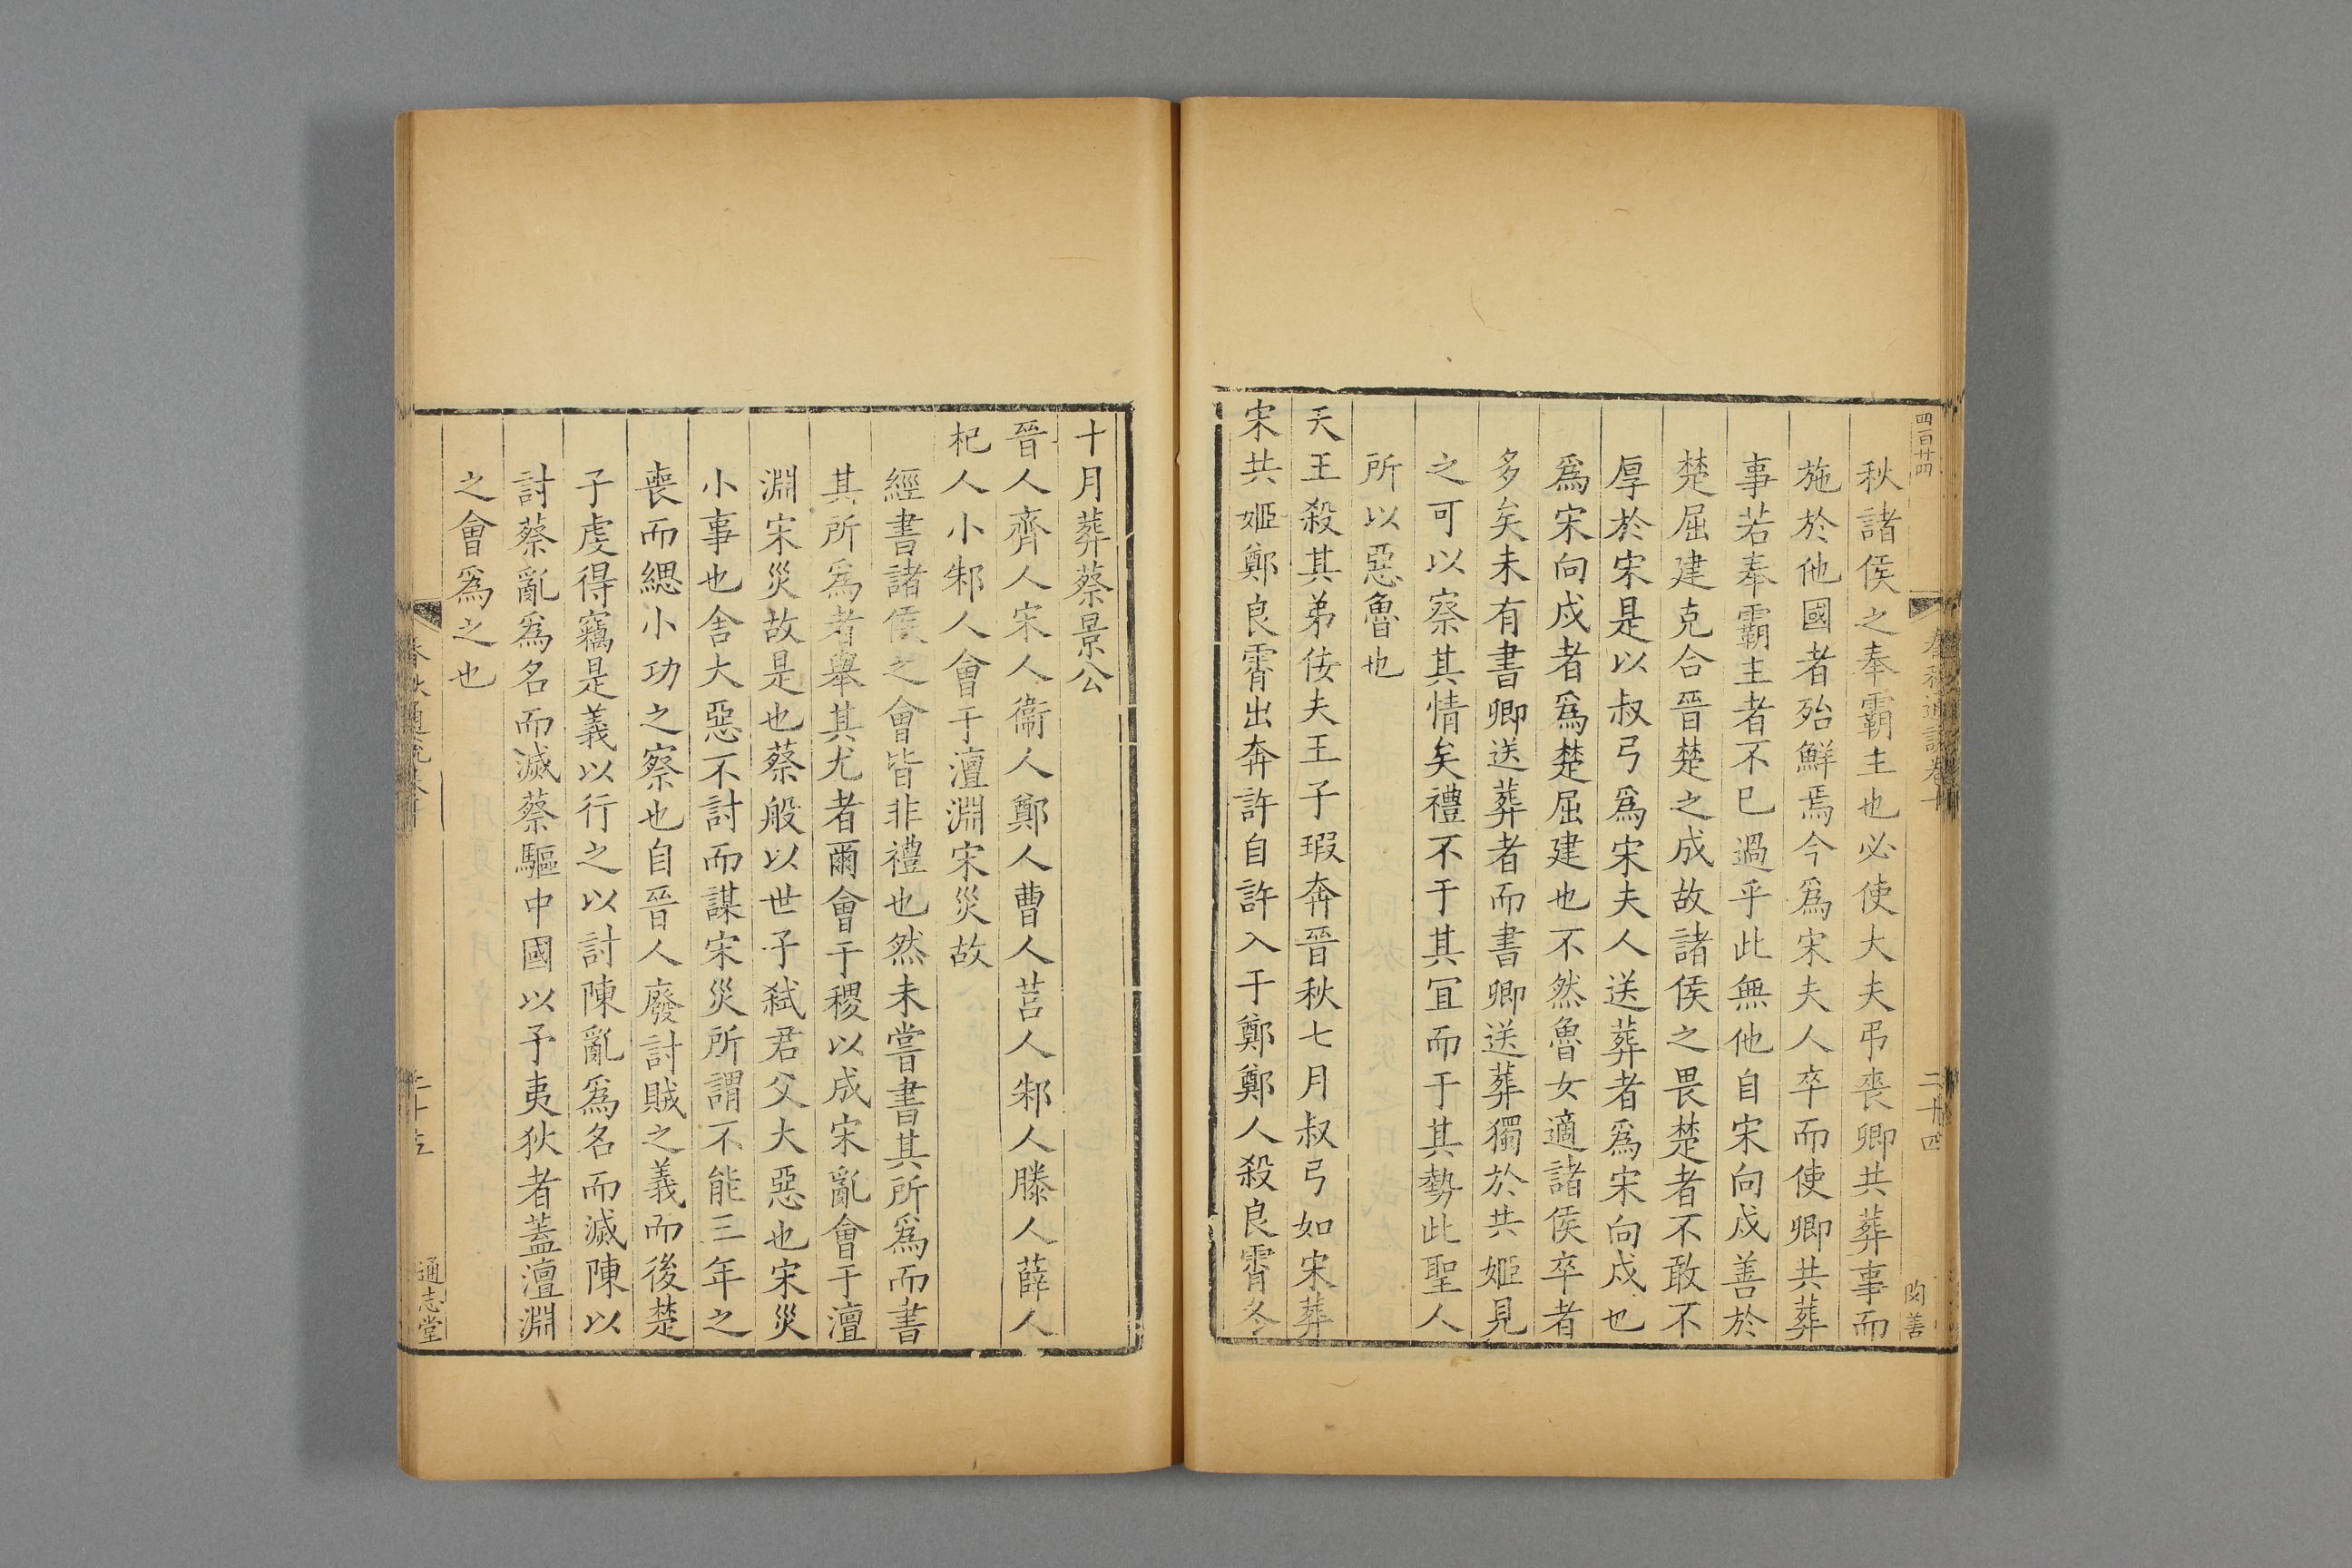 四百廿四
二十四
閔善
秋諸侯之奉霸主也必使大夫弔喪卿共葬事而
施於他國者殆鮮焉今爲宋夫人卒而使卿共葬
事若奉霸主者不巳過乎此無他自宋向戍善於
楚屈建克合晉楚之成故諸侯之畏楚者不敢不
厚於宋是以叔弓爲宋夫人送葬者爲宋向戍也
爲宋向戍者爲楚屈建也不然魯女適諸侯卒者
多矣未有書卿送葬者而書卿送葬獨於共姬見
之可以察其情矣禮不于其冝而于其勢此聖人
所以惡魯也
天王殺其弟佞夫王子瑕奔晉秋七月叔弓如宋葬
宋共姬鄭良霄出奔許自許入于鄭鄭人殺良霄冬
十月葬蔡景公
晉人齊人宋人衞人鄭人曹人莒人邾人滕人薛人
杞人小邾人會于澶淵宋災故
經書諸侯之會皆非禮也然未嘗書其所爲而書
其所爲者舉其尤者爾會于稷以成宋亂會于澶
淵宋災故是也蔡般以世子弑君父大惡也宋災
小事也舍大惡不討而謀宋災所謂不能三年之
喪而緦小功之察也自晉人廢討賊之義而後楚
子虔得竊是義以行之以討陳亂爲名而滅陳以
討蔡亂爲名而滅蔡驅中國以予夷狄者蓋澶淵
之會爲之也
通志堂